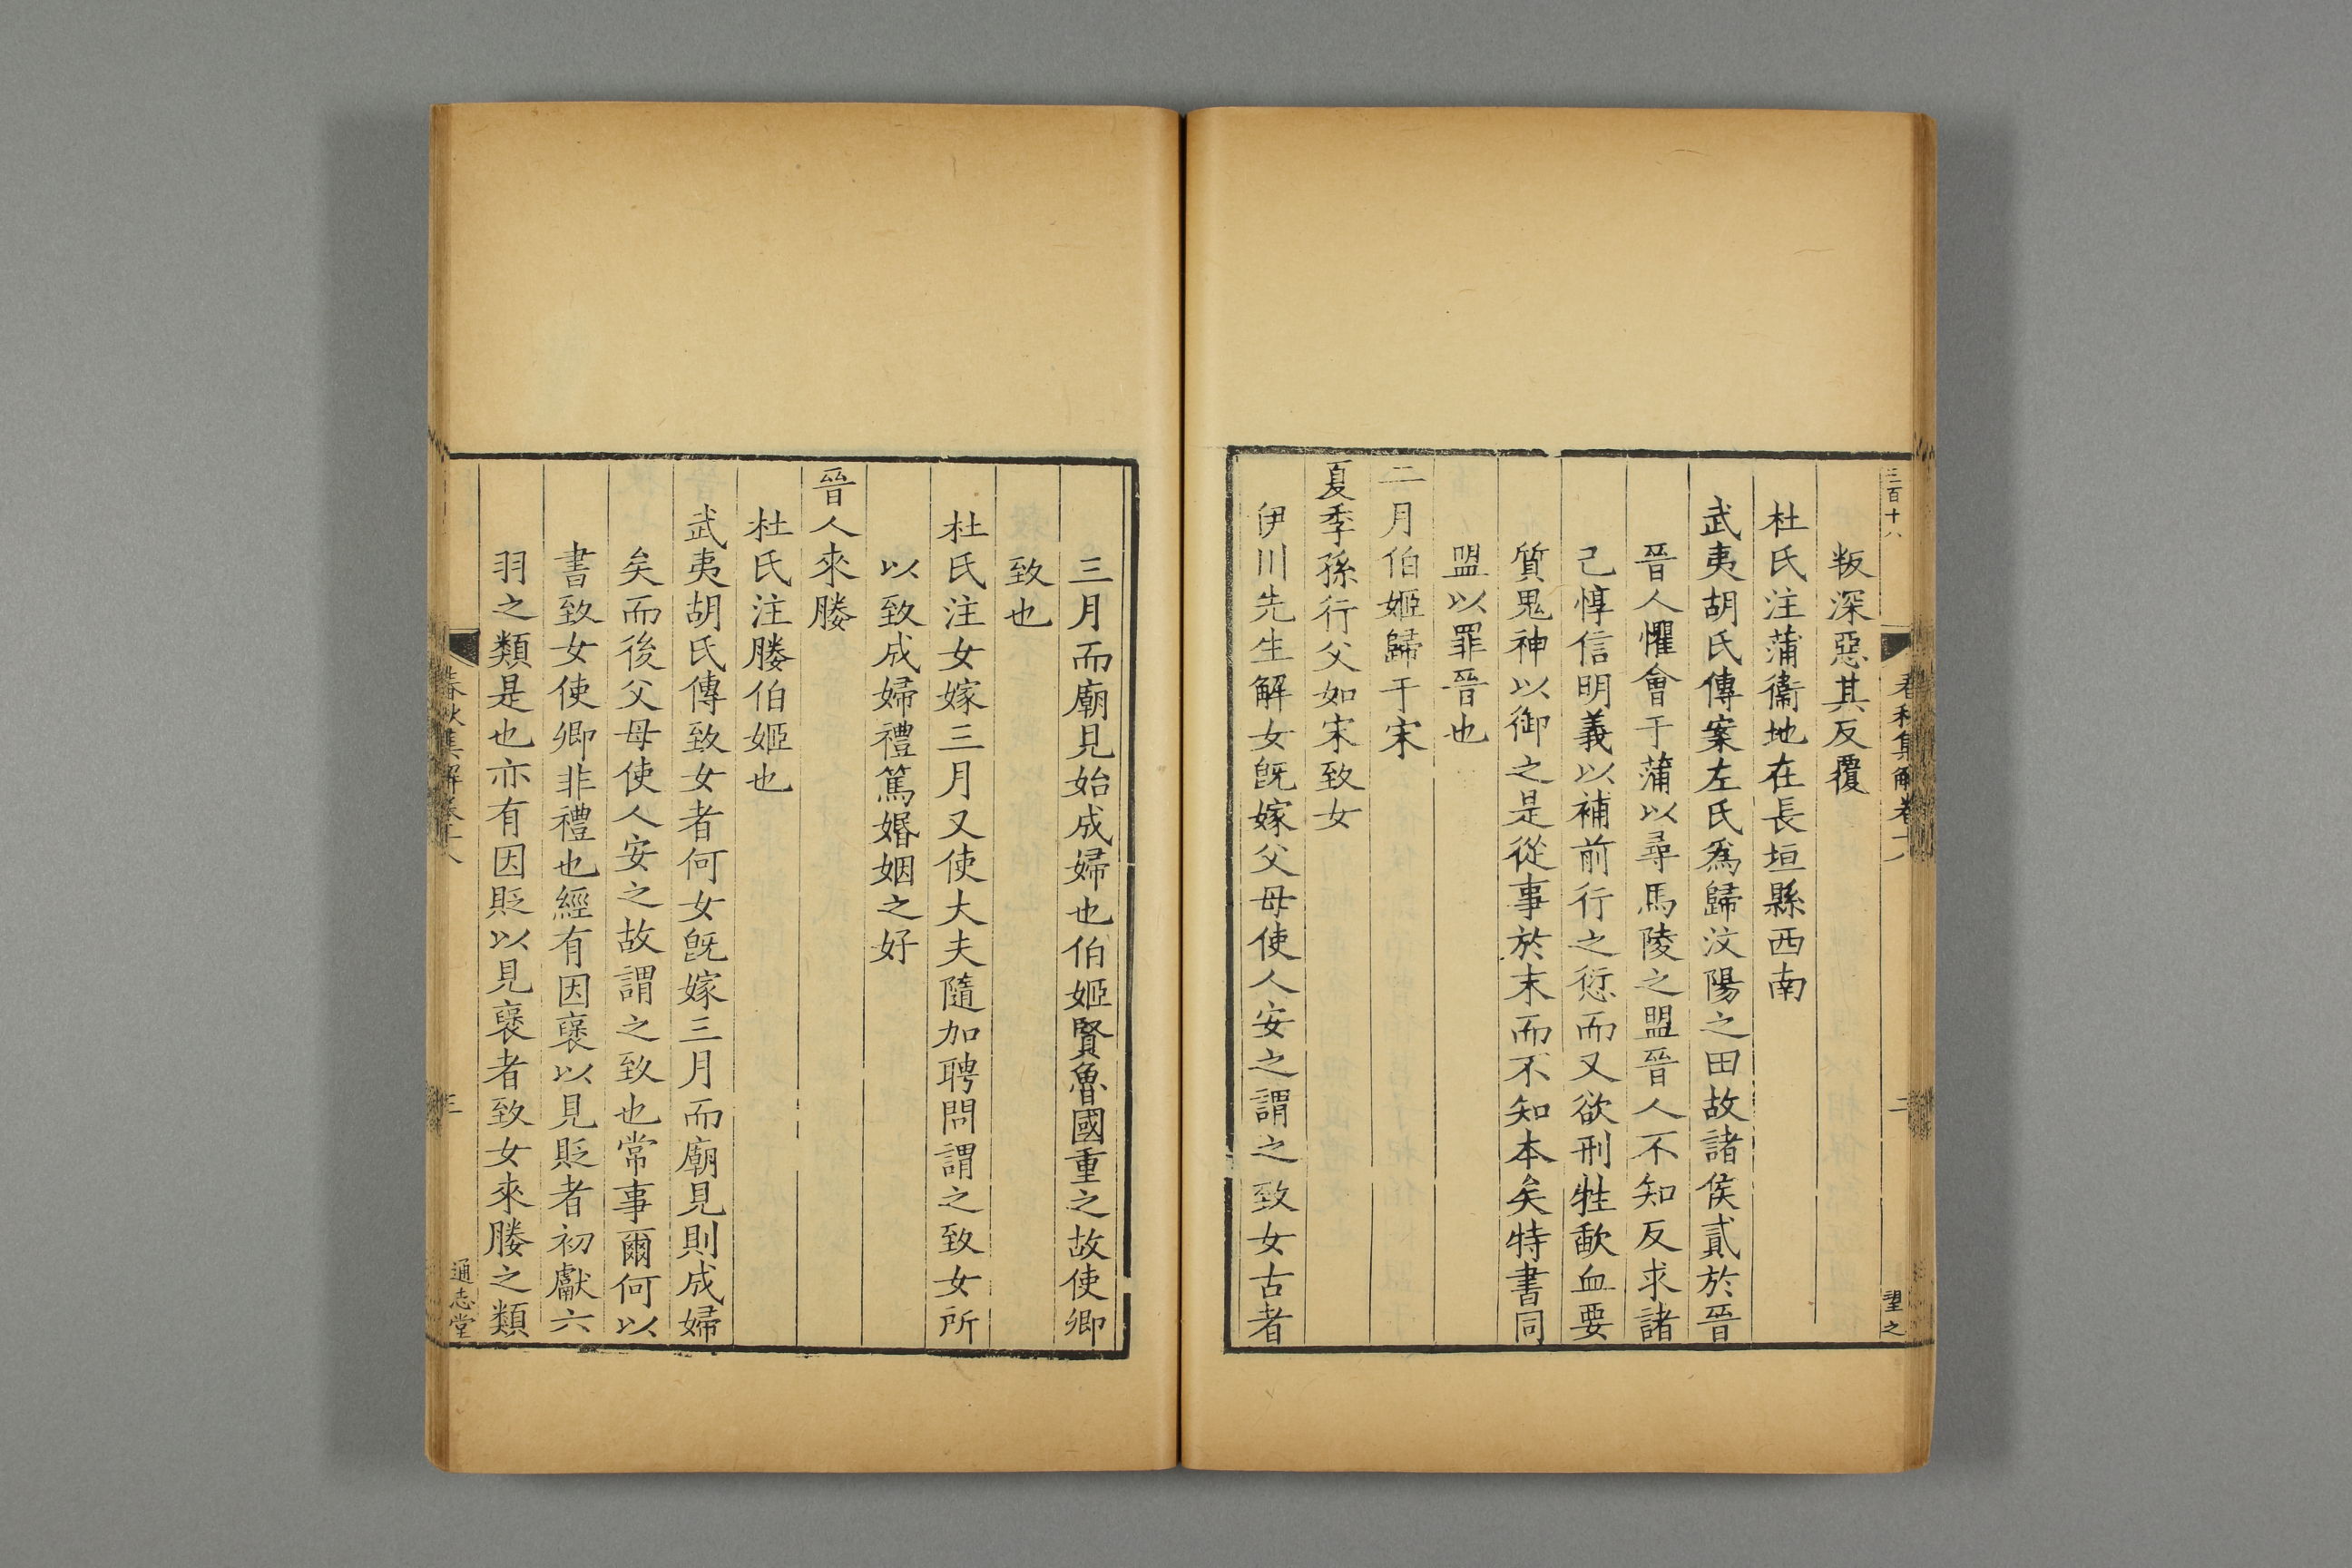 三百十八
春秋集解卷十八
二
望之
叛深惡其反覆
杜氏注蒲衞地在長垣縣西南
武夷胡氏傳案左氏為歸汶陽之田故諸侯貳於晉
晉人懼會于蒲以尋馬陵之盟晉人不知反求諸
己惇信明義以補前行之愆而又欲刑牲歃血要
質鬼神以御之是從事於末而不知本矣特書同
盟以罪晉也
二月伯姬歸于宋
夏季孫行父如宋致女
伊川先生解女旣嫁父母使人安之謂之致女古者
三月而廟見始成婦也伯姬賢魯國重之故使卿
致也
杜氏注女嫁三月又使大夫隨加聘問謂之致女所
以致成婦禮篤婚姻之好
晉人來媵
杜氏注媵伯姬也
武夷胡氏傳致女者何女旣嫁三月而廟見則成婦
矣而後父母使人安之故謂之致也常事爾何以
書致女使卿非禮也經有因褒以見貶者初獻六
羽之類是也亦有因貶以見褒者致女來媵之類
春秋集解卷十八
三
通志堂